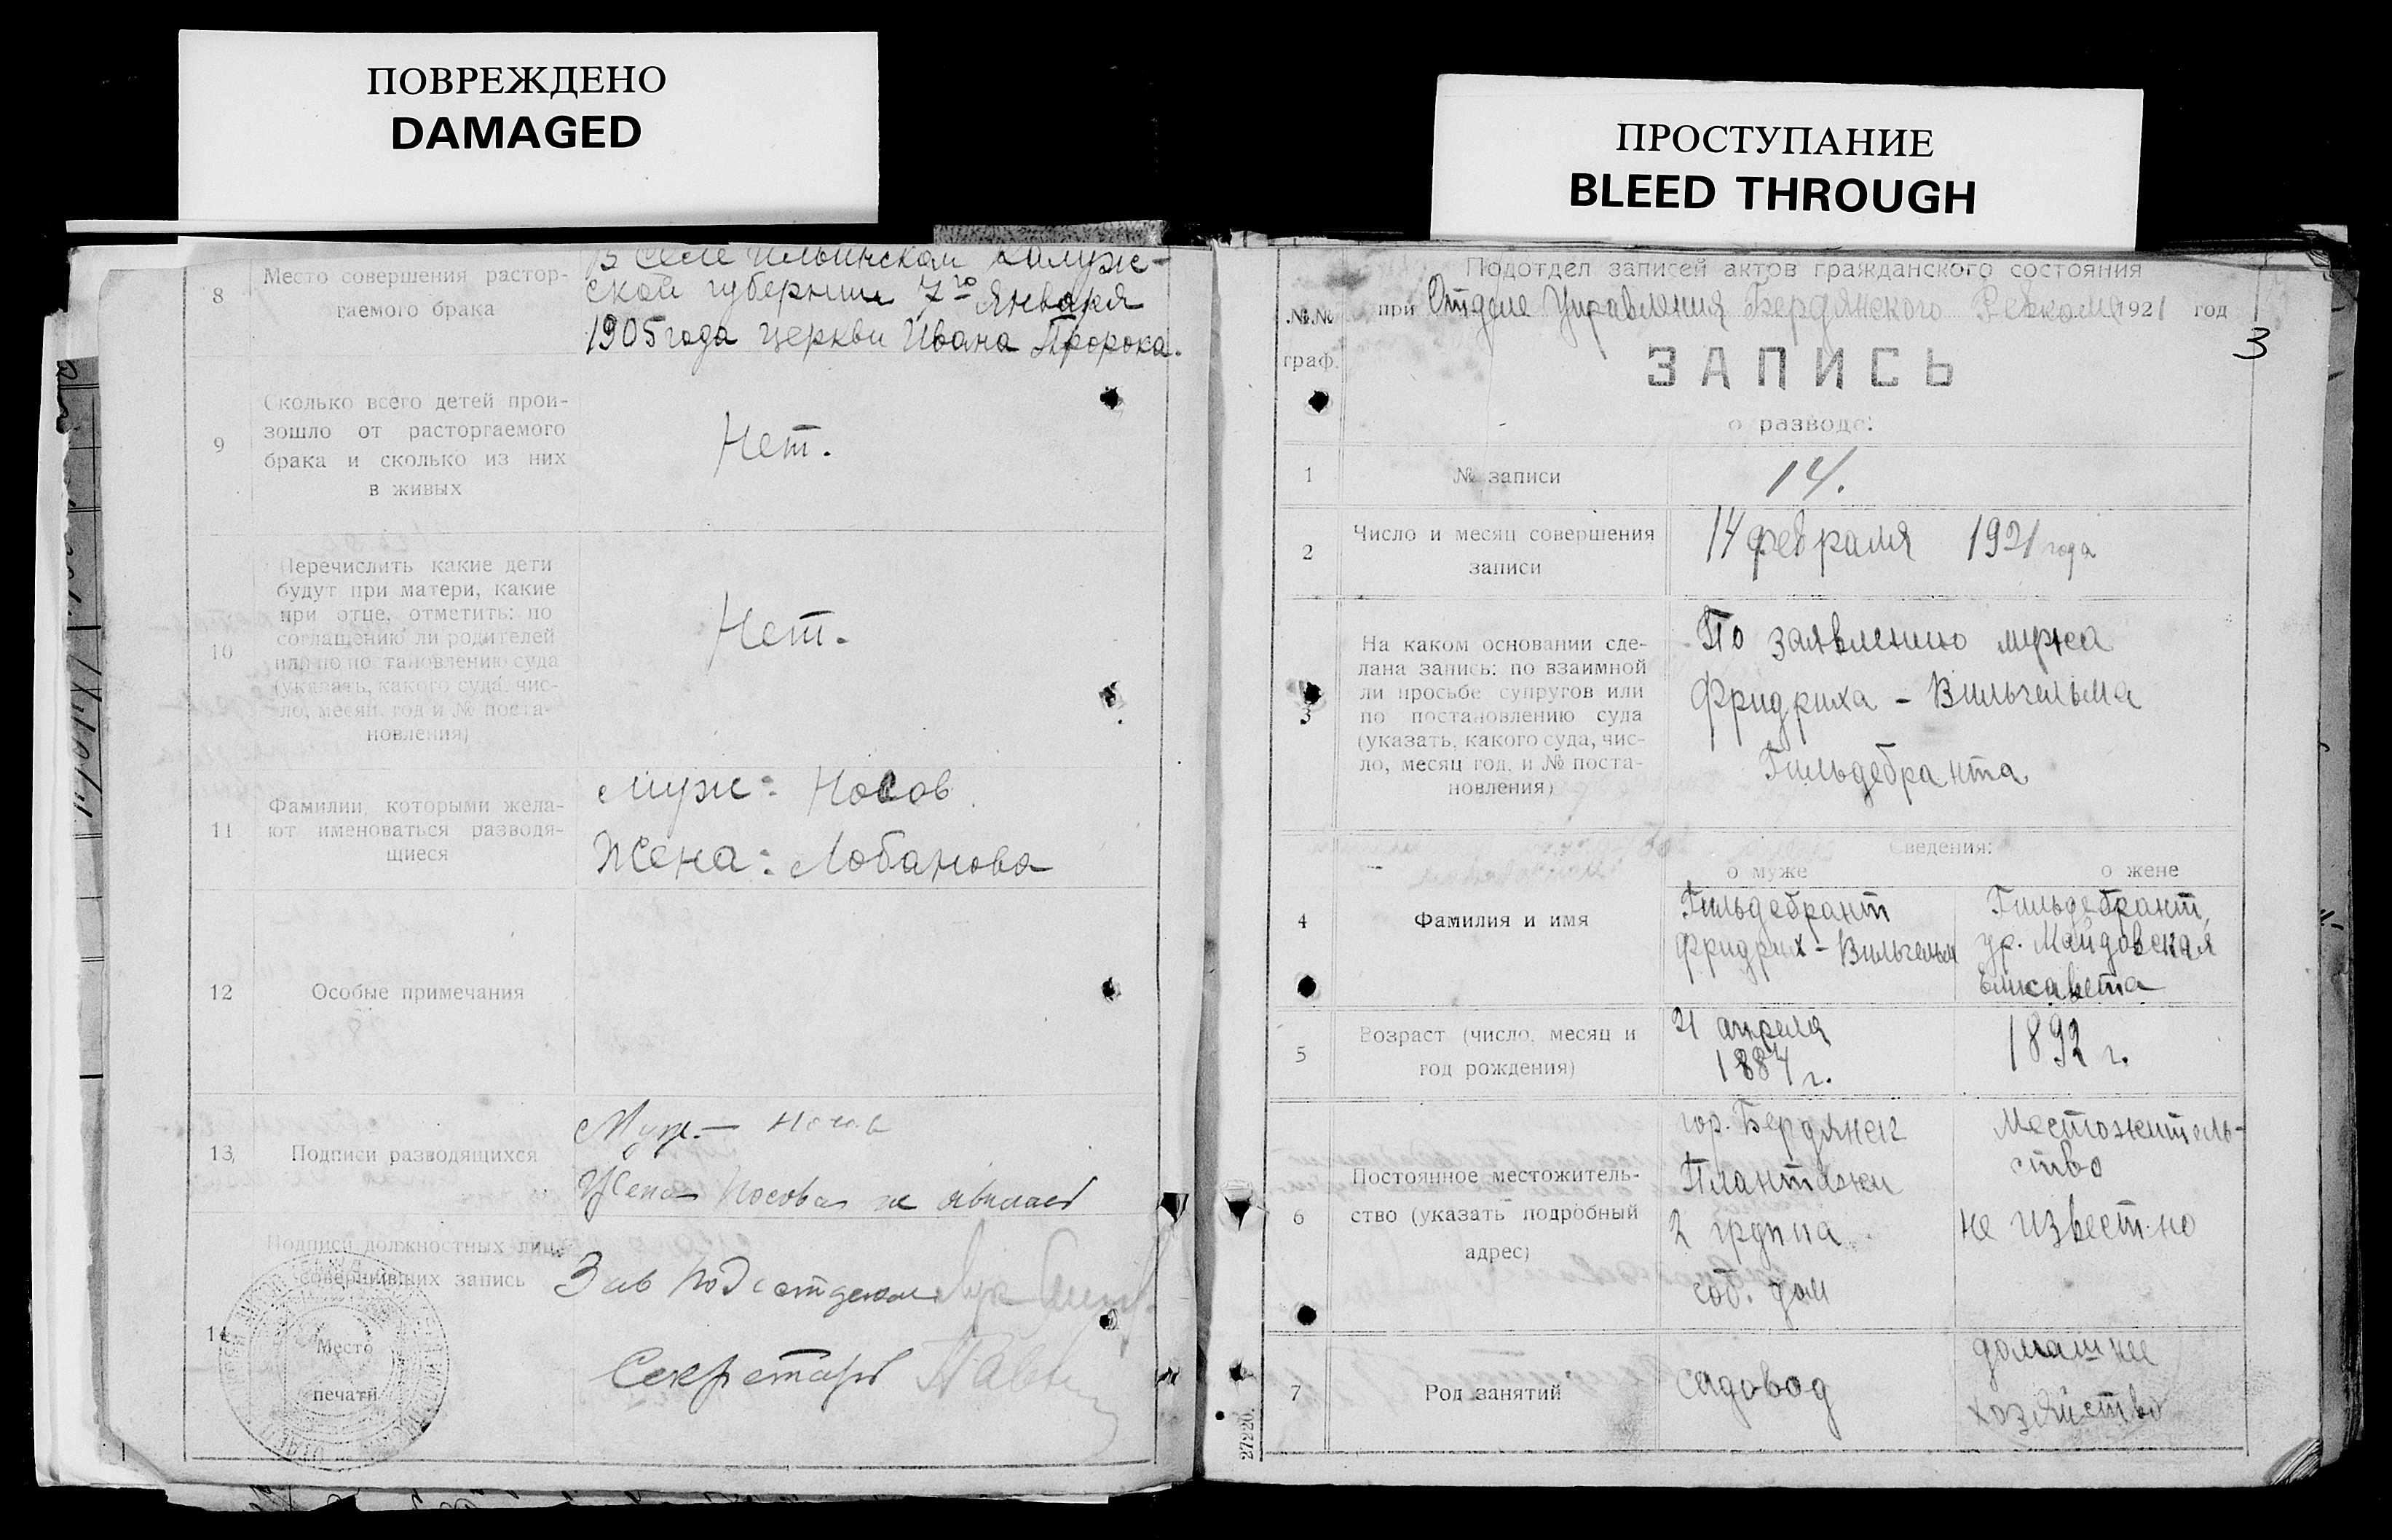 ПОВРЕЖДЕНО
DAMAGED
8
Место совершения растор-
гаемого брака
В Селе Ильинском Калуж-
ской губернии 7го Января
1905 года церкви Ивана Пророка.
9
Сколько всего детей прои-
зошло от расторгаемого
брака и сколько из них
в живых
Нет.
10
Перечислить какие дети
будут при матери, какие
при отце, отметить: по
соглашению ли родителей
или по постановлению суда
(указать, какого суда, чис-
ло, месяц, год и № поста-
новления)
Нет.
11
Фамилии, которыми жела-
ют именоваться разводя-
щиеся
Муж: Носов.
Жена: Лобанова
12
Особые примечания
13
Подписи разводящихся
Муж. — Носов
Жена Носова не явилась
14
Подписи должностных лиц,
совершивших запись
Место
печати
Зав Подотделом
Секретарь
ПРОСТУПАНИЕ
BLEED THROUGH
3
Подотдел записей актов гражданского состояния
при Отделе Управления Бердянского Ревкома 1921 год
№№
граф.
ЗАПИСЬ
о разводе:
1
№ записи
14.
2
Число и месяц совершения
записи
14 февраля 1921 года
3
На каком основании сде-
лана запись: по взаимной
ли просьбе супругов или
по постановлению суда
(указать, какого суда, чис-
ло, месяц, год, и № поста-
новления)
По заявлению мужа
Фридриха - Вильгельма
Гильдебранта
Сведения:
о муже
о жене
4
Фамилия и имя
Гильдебрант
Фридрих - Вильгельм
Гильдебрант,
ур. Майдовская
Елисавета
5
Возраст (число, месяц и
год рождения)
21 апреля
1884 г.
1892 г.
6
Постоянное местожитель-
ство (указать подробный
адрес)
гор. Бердянск
Плантажи
2 группа
соб. дом
Местожитель-
ство
не известно
7
Род занятий
садовод
домашнее
хозяйство
27220.